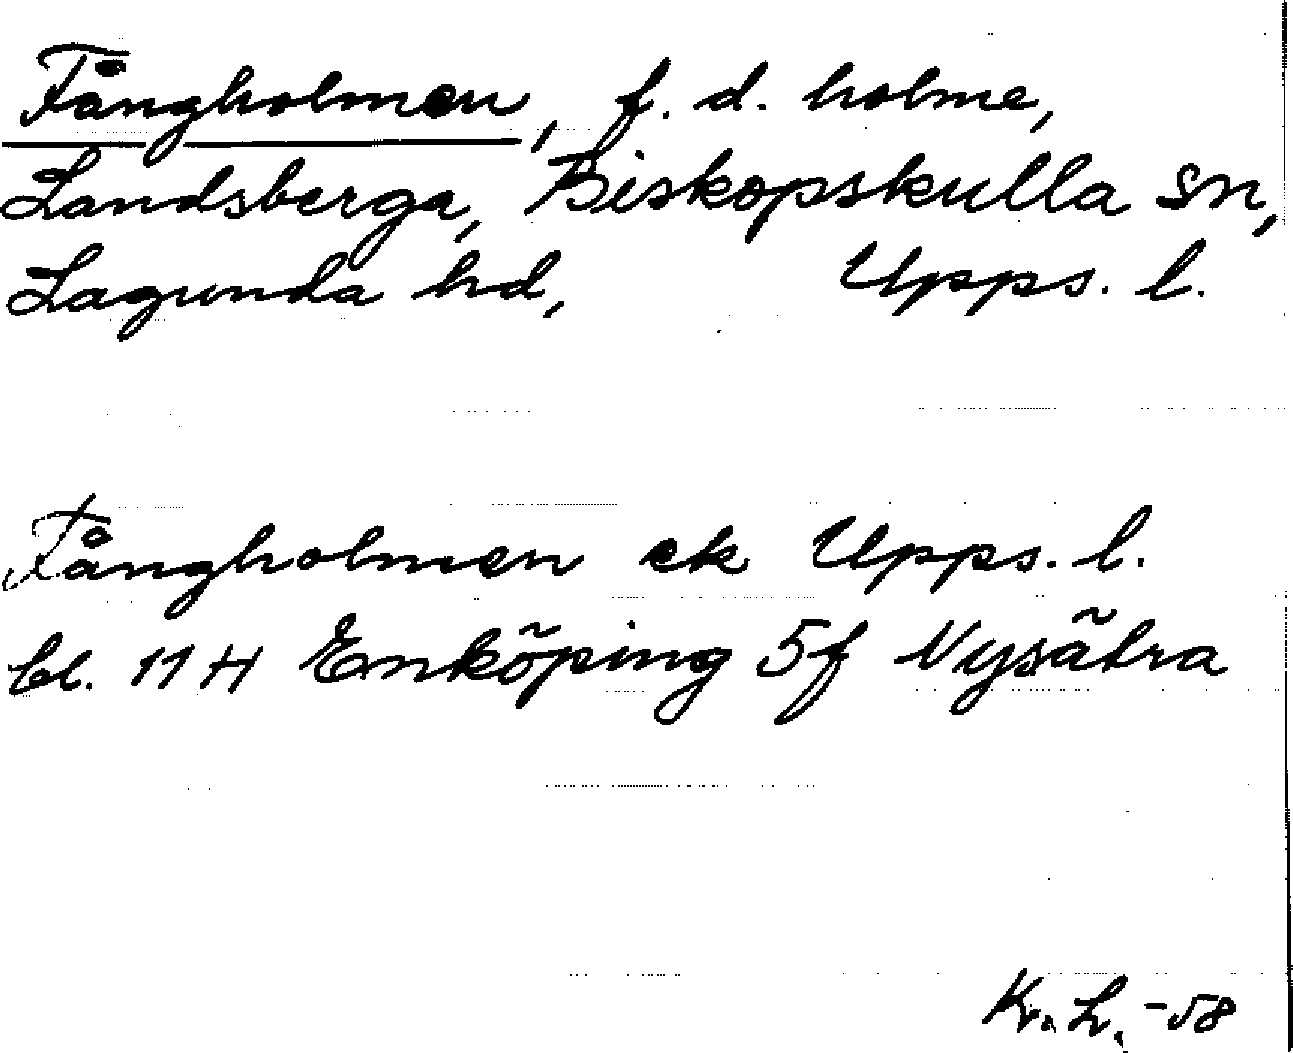 Fångholmen, f. d. holme,
Landsberga, Biskopskulla sn,
Lagunda hd, Upps. l.
Fångholmen ek Upps. l.
bl. 11 H Enköping 5f Nysätra
K. L. -58